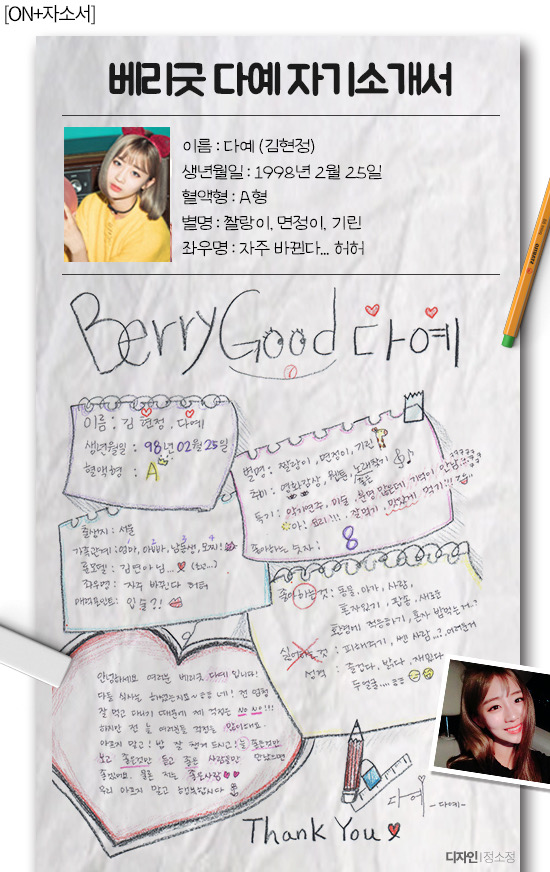 [ON+자소서]
베리굿 다예 자기소개서
이름 : 다예 (김현정)
생년월일 : 1998년 2월 25일
혈액형 : A형
별명 : 짤랑이, 면정이, 기린
좌우명 : 자주 바뀐다... 허허
BerryGood 다예
이름 : 김현정, 다예
생년월일 : 98년 02월 25일
혈액형 : A
별명 : 짤랑이, 면정이, 기린
취미 : 영화감상, 웹툰, 노래찾기
특기 :
좋아하는 숫자 : 8
출생지 : 서울
가족관계 : 엄마, 아빠, 남동생, 모찌!
롤모델 : 김연아님...
좌우명 : 자주 바뀐다 허허
매력포인트 : 입술?!
좋아하는 것 : 동물, 아기, 사람,
혼자있기, 잡동, 새로운
환경에 적응하기, 혼자 밥먹는거..?
싫어하는 것 : 피해주기,
성격 : 즐겁다, 밝다, 재밌다
두얼굴....
안녕하세요 여러분 베리굿 다예입니다!
다들 식사는 하셨는지요~ 네! 전 엄청
잘 먹고 다니기 때문에 제 걱정은 No No!!!
하지만 전 늘 여러분들 걱정을 많이해요..
아프지 말고! 밥 잘 챙겨 드시고! 늘 좋은것만
보고 좋은것만 듣고 좋은 사람들만 만났으면
좋겠어요. 물론 저는 좋은사람
우리 아프지 말고 행복합시다
다예
-다예-
Thank You
디자인 | 정소정